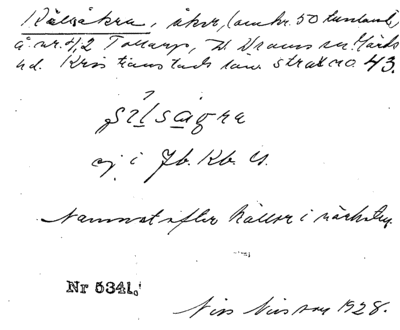 Källsåkra, åker, (omkr. 50 tunnland)
å nr. 4,2 Tollarp, V. Vrams sn. Gärds
hd. Kristianstads län. strax no 43.
ej i Jb. Kb. U.
Namnet efter källor i närheten.
Nr 5341.
Nils Nilsson 1928.